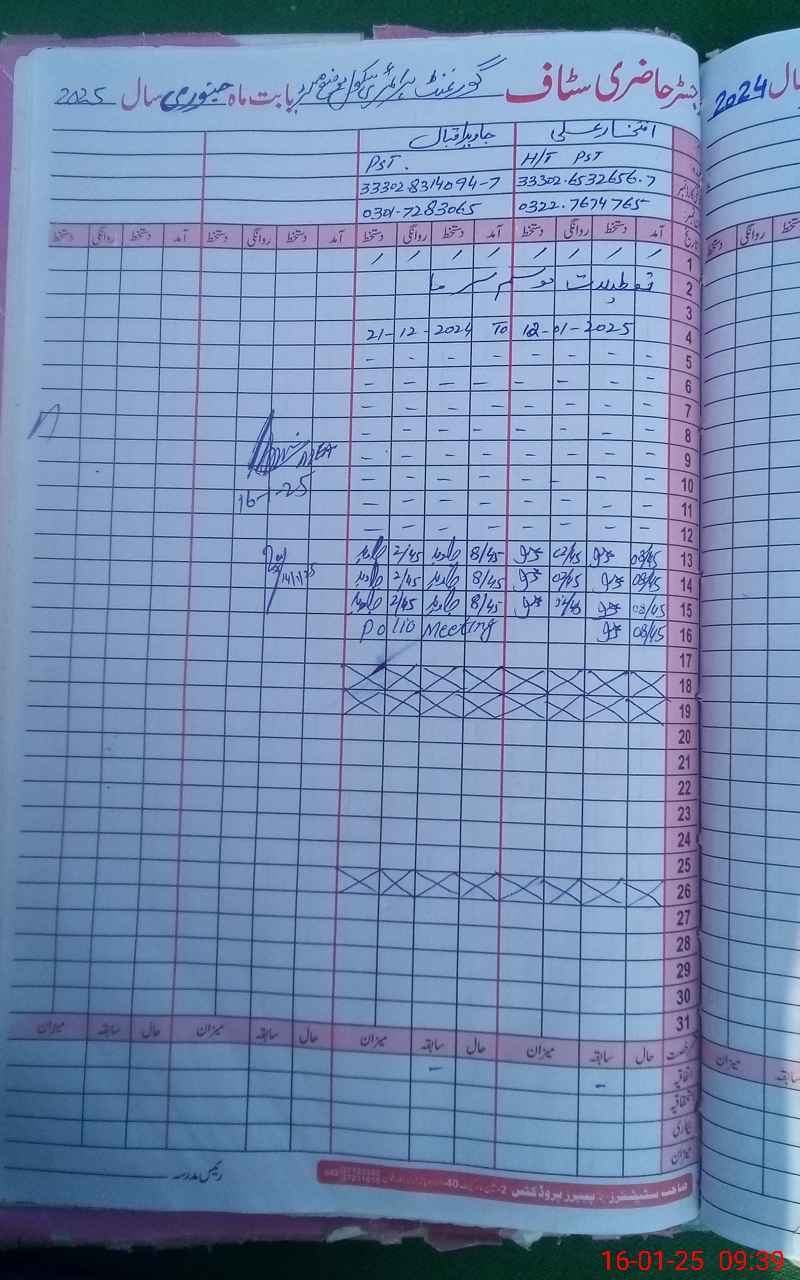 رجسٹر حاضری سٹاف گورنمنٹ پرائمری سکول بابت ماہ جنوری سال 2025
سال 2024
افتخار علی جاوید اقبال
H/T PST PST.
33302.6532656.7 33302.8314094-7
0322.7674765 0301-7283065
آمد دستخط روانگی دستخط آمد دستخط روانگی دستخط آمد دستخط روانگی دستخط آمد دستخط روانگی دستخط
1
2 تعطیلات موسم سرما
3
4 21-12-2024 To 12-01-2025
5
6
7
8
9
10
16-1-25
11
12
13 08/45 02/45 8/45 جاوید 2/45 جاوید
14 08/45 02/45 8/45 جاوید 2/45 جاوید
14/1/25
15 08/45 02/45 8/45 جاوید 2/45 جاوید
16 08/45 Polio Meeting
17
18
19
20
21
22
23
24
25
26
27
28
29
30
31
رخصت حال سابقہ میزان حال سابقہ میزان حال سابقہ میزان حال سابقہ میزان
اتفاقیہ
استحقاقیہ
بیماری
میزان
رئیس مدرسہ
صاحب سٹیشنرز پیپرز پروڈکٹس
16-01-25 09:39